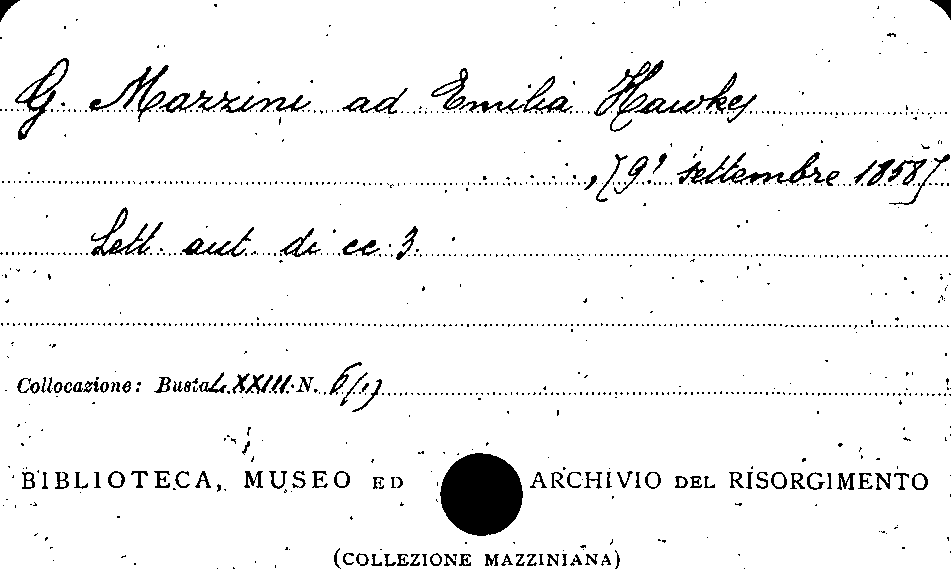 G. Mazzini ad Emilia Hawkes
, [9? settembre 1858]
Lett. aut. di cc. 3.
Collocazione: Busta LXXIII N. 6/1)
BIBLIOTECA, MUSEO ED ARCHIVIO DEL RISORGIMENTO
(COLLEZIONE MAZZINIANA)